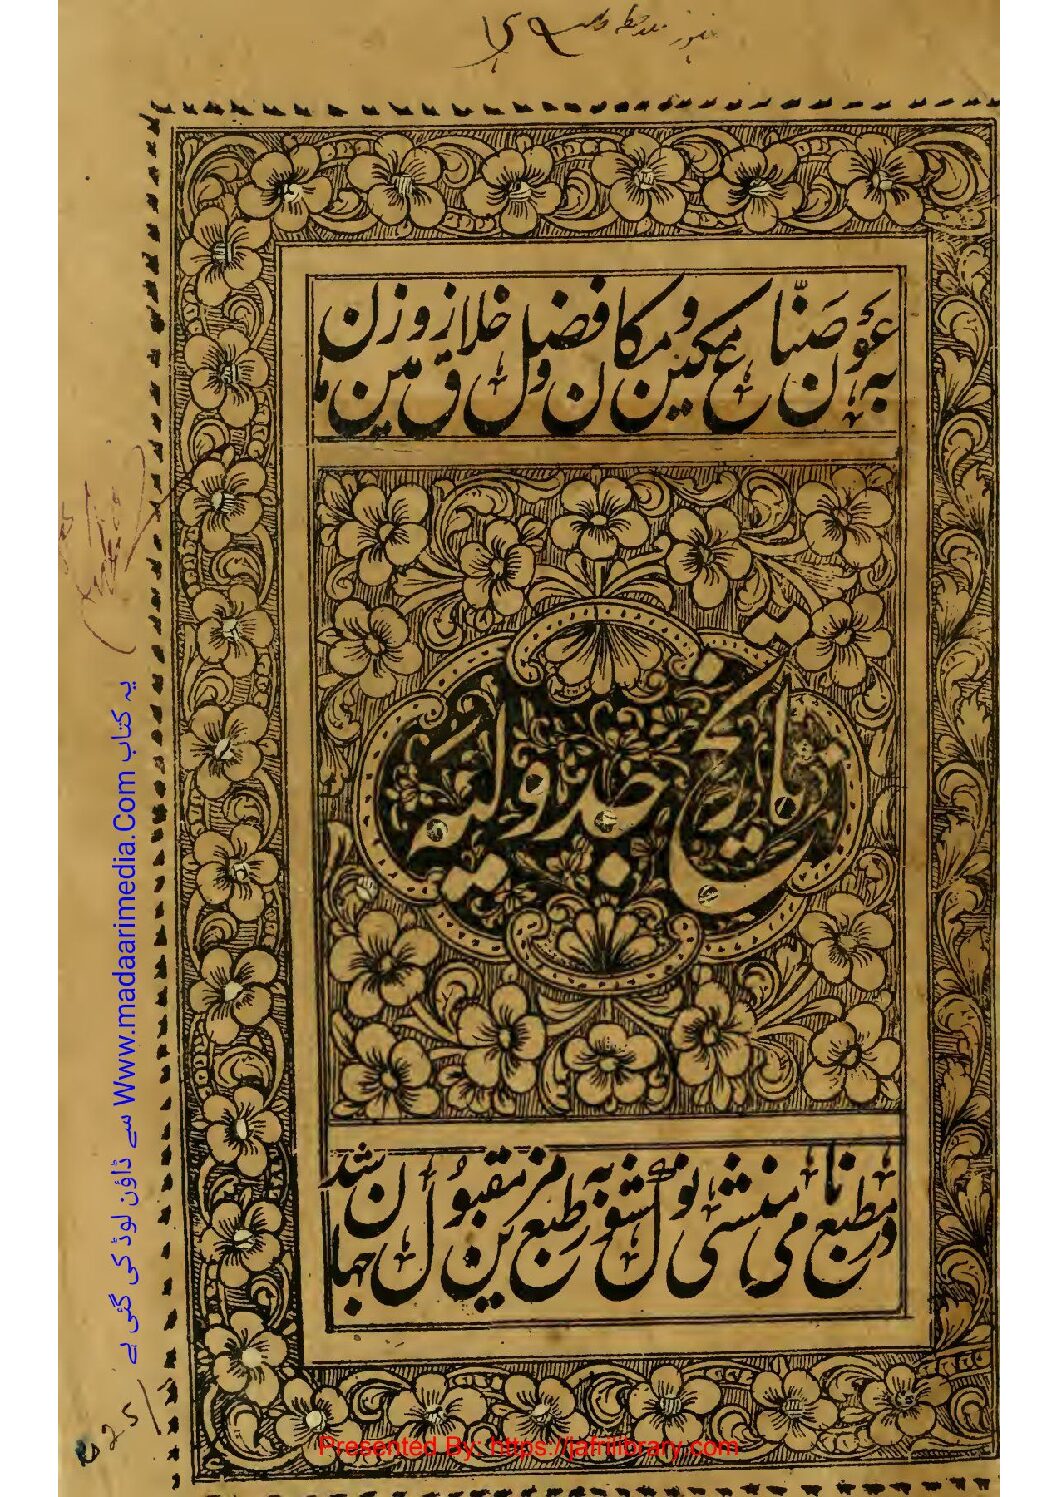 بہ عون صنّاع مکین و مکان و فضل خلاق زمین و زمان
تاریخ جدولیہ
در مطبع نامی منشی نولکشور بہ طبع مزین مقبول جہان شد
یہ کتاب Www.madaarimedia.Com سے ڈاؤن لوڈ کی گئی ہے
Presented By: https://jafrilibrary.com